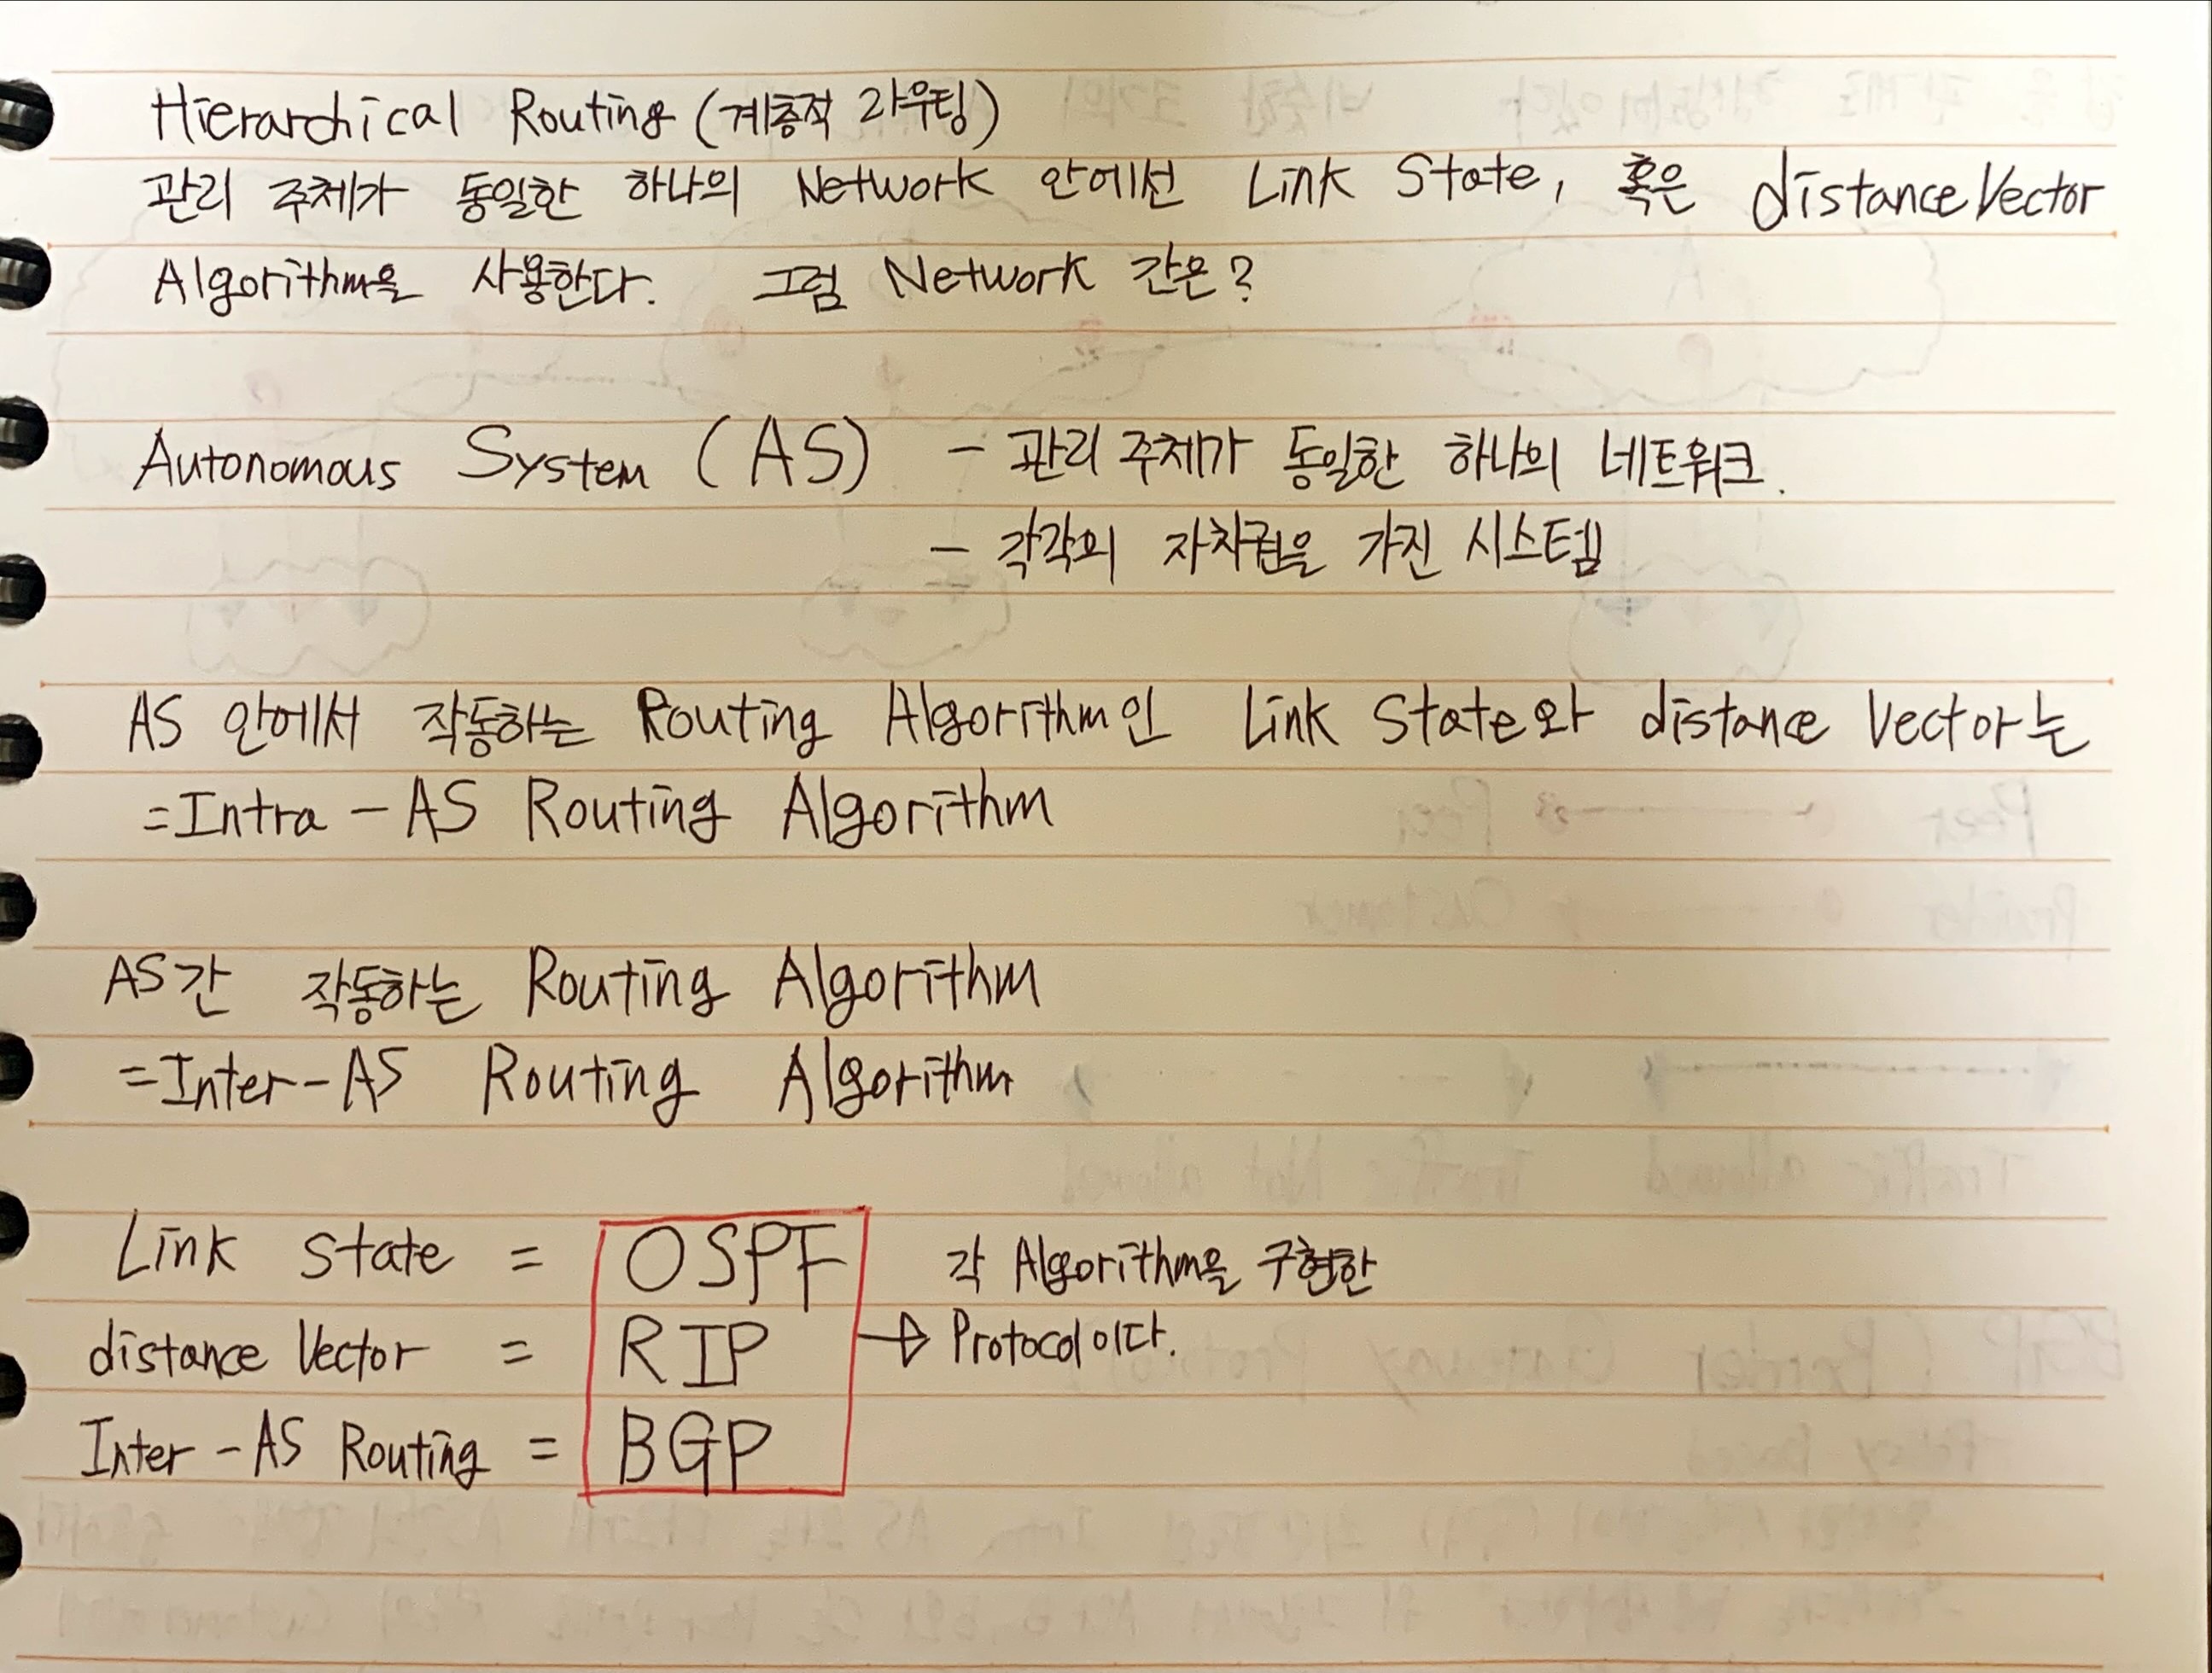 Hierarchical Routing (계층적 라우팅)
관리 주체가 동일한 하나의 Network 안에선 Link State, 혹은 distance Vector
Algorithm을 사용한다. 그럼 Network 간은?
Autonomous System (AS) - 관리 주체가 동일한 하나의 네트워크.
- 각각의 자치권을 가진 시스템
AS 안에서 작동하는 Routing Algorithm인 Link State와 distance Vector는
=Intra-AS Routing Algorithm
AS간 작동하는 Routing Algorithm
=Inter-AS Routing Algorithm
Link State = OSPF 각 Algorithm을 구현한
distance Vector = RIP → Protocol이다.
Inter-AS Routing = BGP